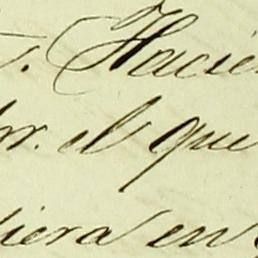 Hacie
el que
iera en